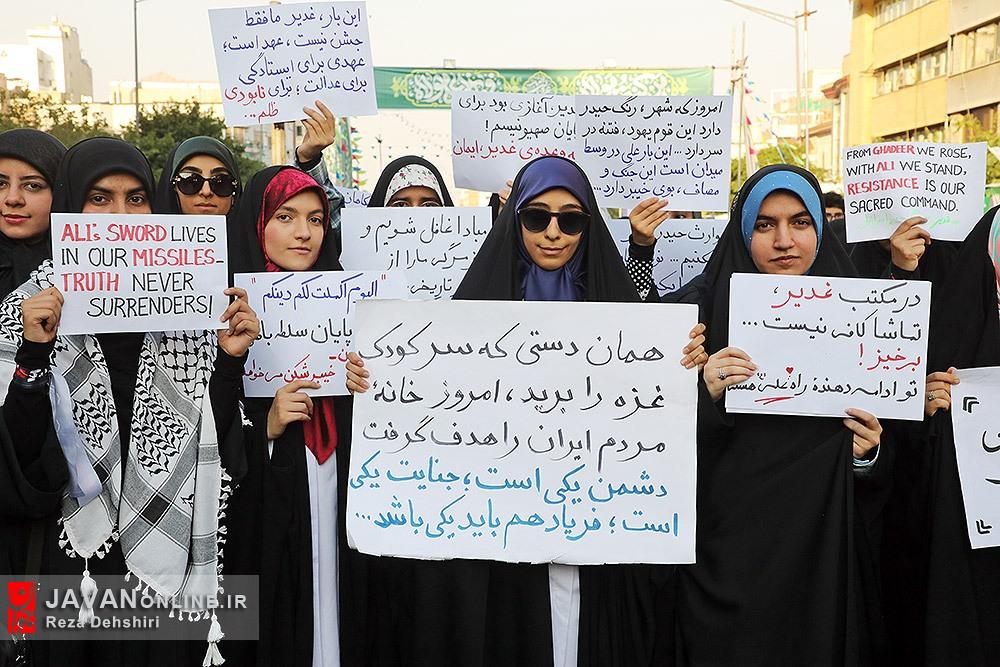 این بار، غدیر ما فقط
جشن نیست، عهد است؛
عهدی برای ایستادگی
برای عدالت؛ برای نابودی
ظلم...
امروز که شهر، رنگ حیدر
دارد این قوم یهود، فتنه در
سر دارد... این بار علی در وسط
میدان است این جنگ و
مصاف، بوی خیبر دارد...
غدیر آغازی بود برای
پایان صهیونیسم!
وعده‌ی غدیر، ایمان
FROM GHADEER WE ROSE,
WITH ALI WE STAND,
RESISTANCE IS OUR
SACRED COMMAND.
ALI's SWORD LIVES
IN OUR MISSILES-
TRUTH NEVER
SURRENDERS!
"الیوم اکملت لکم دینکم"
پایان سلطه
خیبر شکن می‌خوا
مبادا غافل شویم و
مارا از
تاریخ
همان دستی که سر کودک
غزه را برید، امروز خانهٔ
مردم ایران را هدف گرفت
دشمن یکی است؛ جنایت یکی
است؛ فریاد هم باید یکی باشد...
در مکتب غدیر،
تماشاگه نیست...
برخیز!
تو ادامه دهندهٔ راه علی هستی
JAVANONLINE.IR
Reza Dehshiri